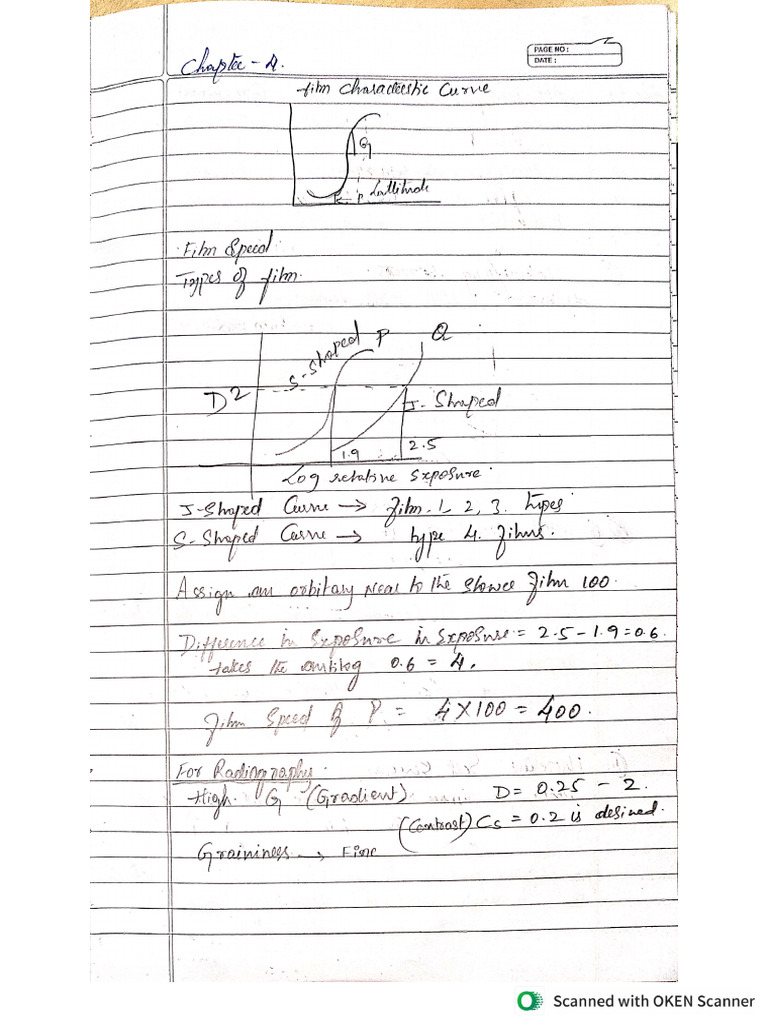 PAGE NO:
DATE:
Chapter - 4.
film Characteristic Curve
G
Lattitude
Film Speed.
Types of film.
S-Shaped P Q
D 2
J- Shaped
1.9 2.5
Log relative Exposure.
J-Shaped Curve → film 1, 2, 3. types
S-Shaped Curve → type 4. films.
Assign an orbitary to the slower film 100.
Difference in Exposure in Exposure = 2.5 - 1.9 = 0.6.
takes the antilog 0.6 = 4.
film Speed of P = 4 X 100 = 400.
For Radiography.
High. G (Gradient) D = 0.25 - 2.
(Contrast) Cs = 0.2 is desired.
Graininess → Fine
Scanned with OKEN Scanner